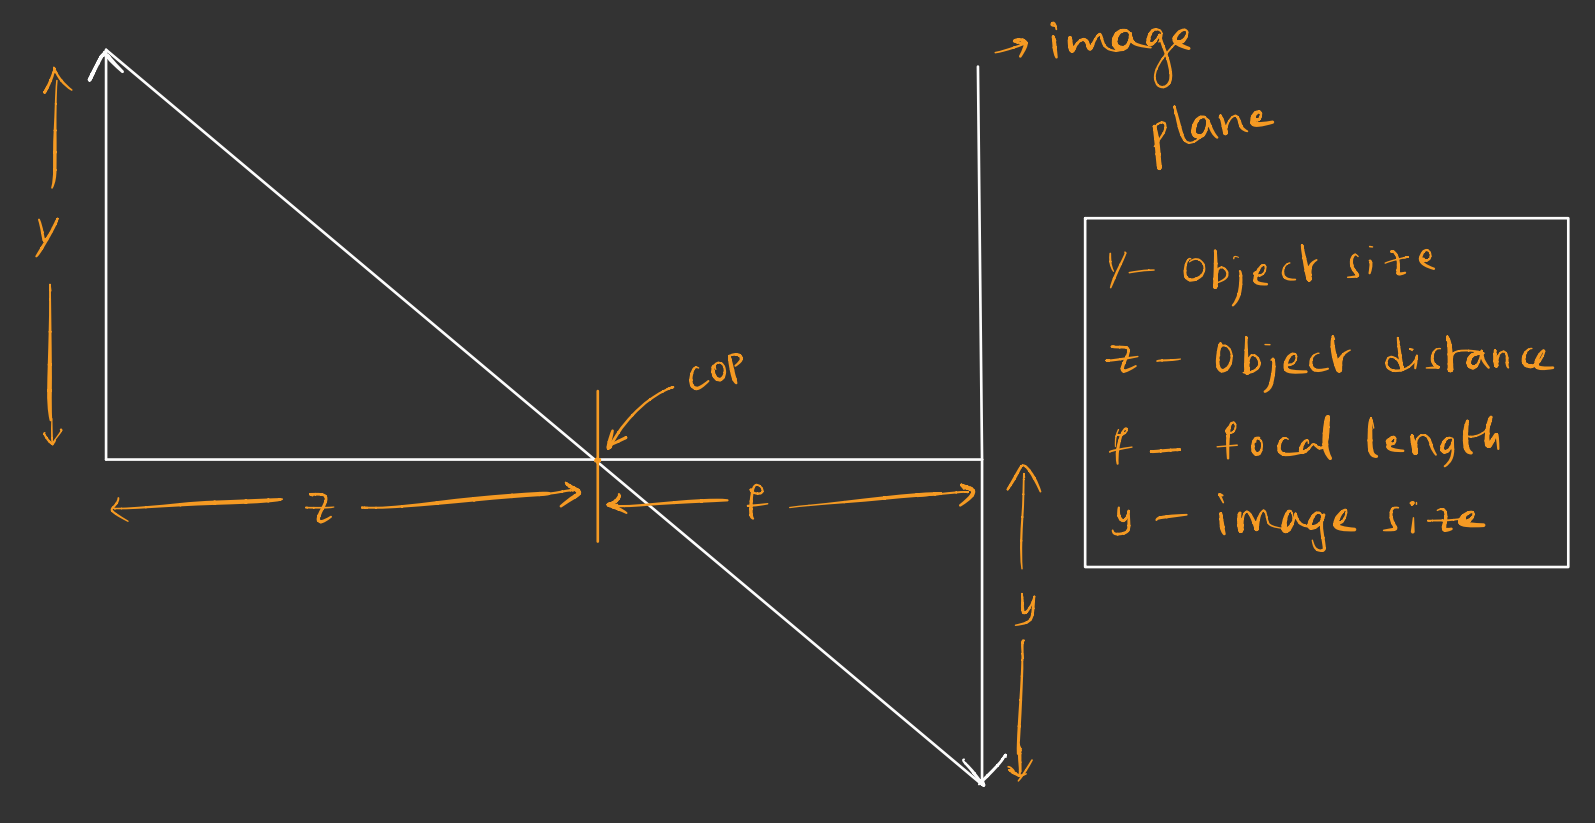 → image
plane
Y
COP
Z
f
y
Y - Object size
Z - Object distance
f - focal length
y - image size